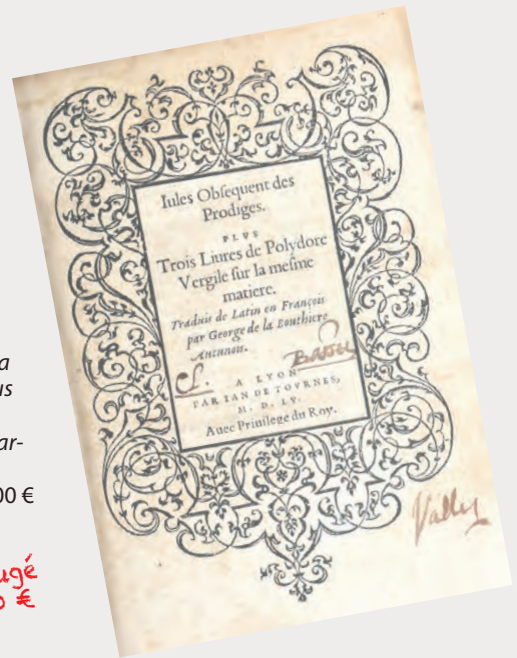 Iules Obſequent des
Prodiges.
PLVS
Trois Liures de Polydore
Vergile ſur la meſme
matiere.
Traduis de Latin en François
par George de la Bouthiere
Autunois.
Cl.
A LYON
PAR IAN DE TOVRNES,
M. D. LV.
Auec Priuilege du Roy.
a
us
ar-
00 €
ugé
0 €